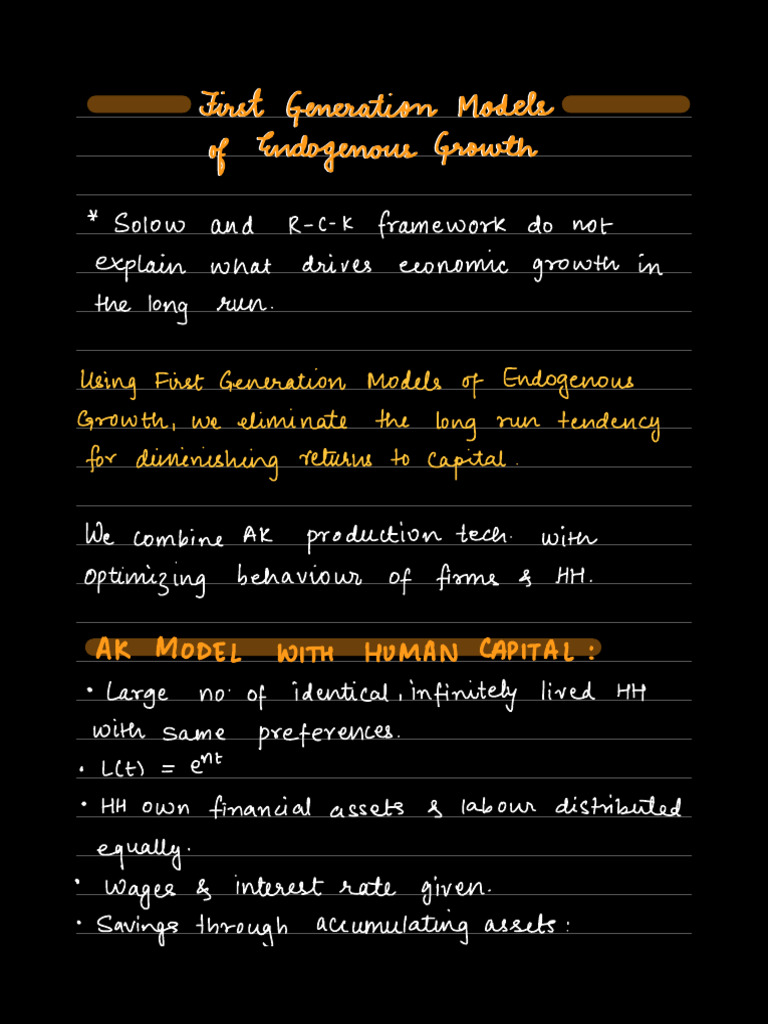 First Generation Models
of Endogenous Growth
* Solow and R-C-K framework do not
explain what drives economic growth in
the long run.
Using First Generation Models of Endogenous
Growth, we eliminate the long run tendency
for diminishing returns to capital.
We combine AK production tech. with
optimizing behaviour of firms & HH.
AK MODEL WITH HUMAN CAPITAL:
• Large no. of identical, infinitely lived HH
with same preferences.
• L(t) = e^nt
• HH own financial assets & labour distributed
equally.
• Wages & interest rate given.
• Savings through accumulating assets: